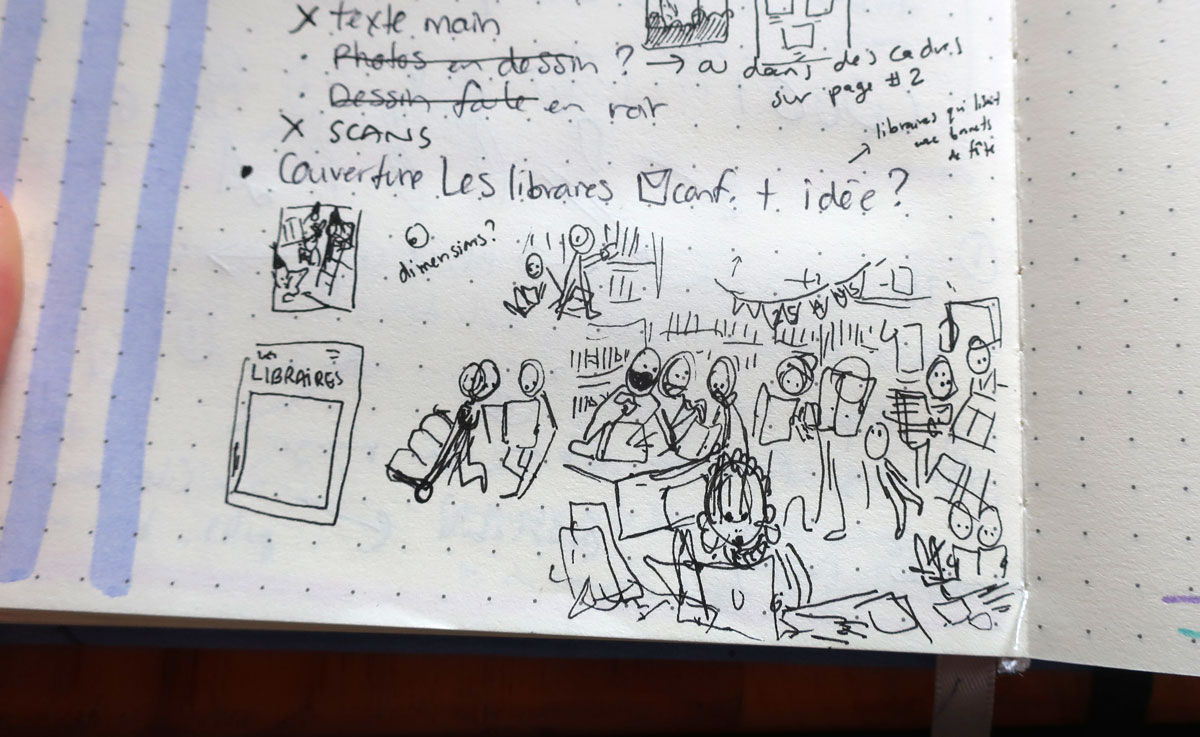 X texte main
• Photos en dessin ? → ou dans des cadres
sur page #2
• Dessin faite en noir
X SCANS
libraires qui lisent
avec bonnets
de fête
• Couverture Les libraires conf. + idée ?
dimensions?
Les
LIBRAIRES